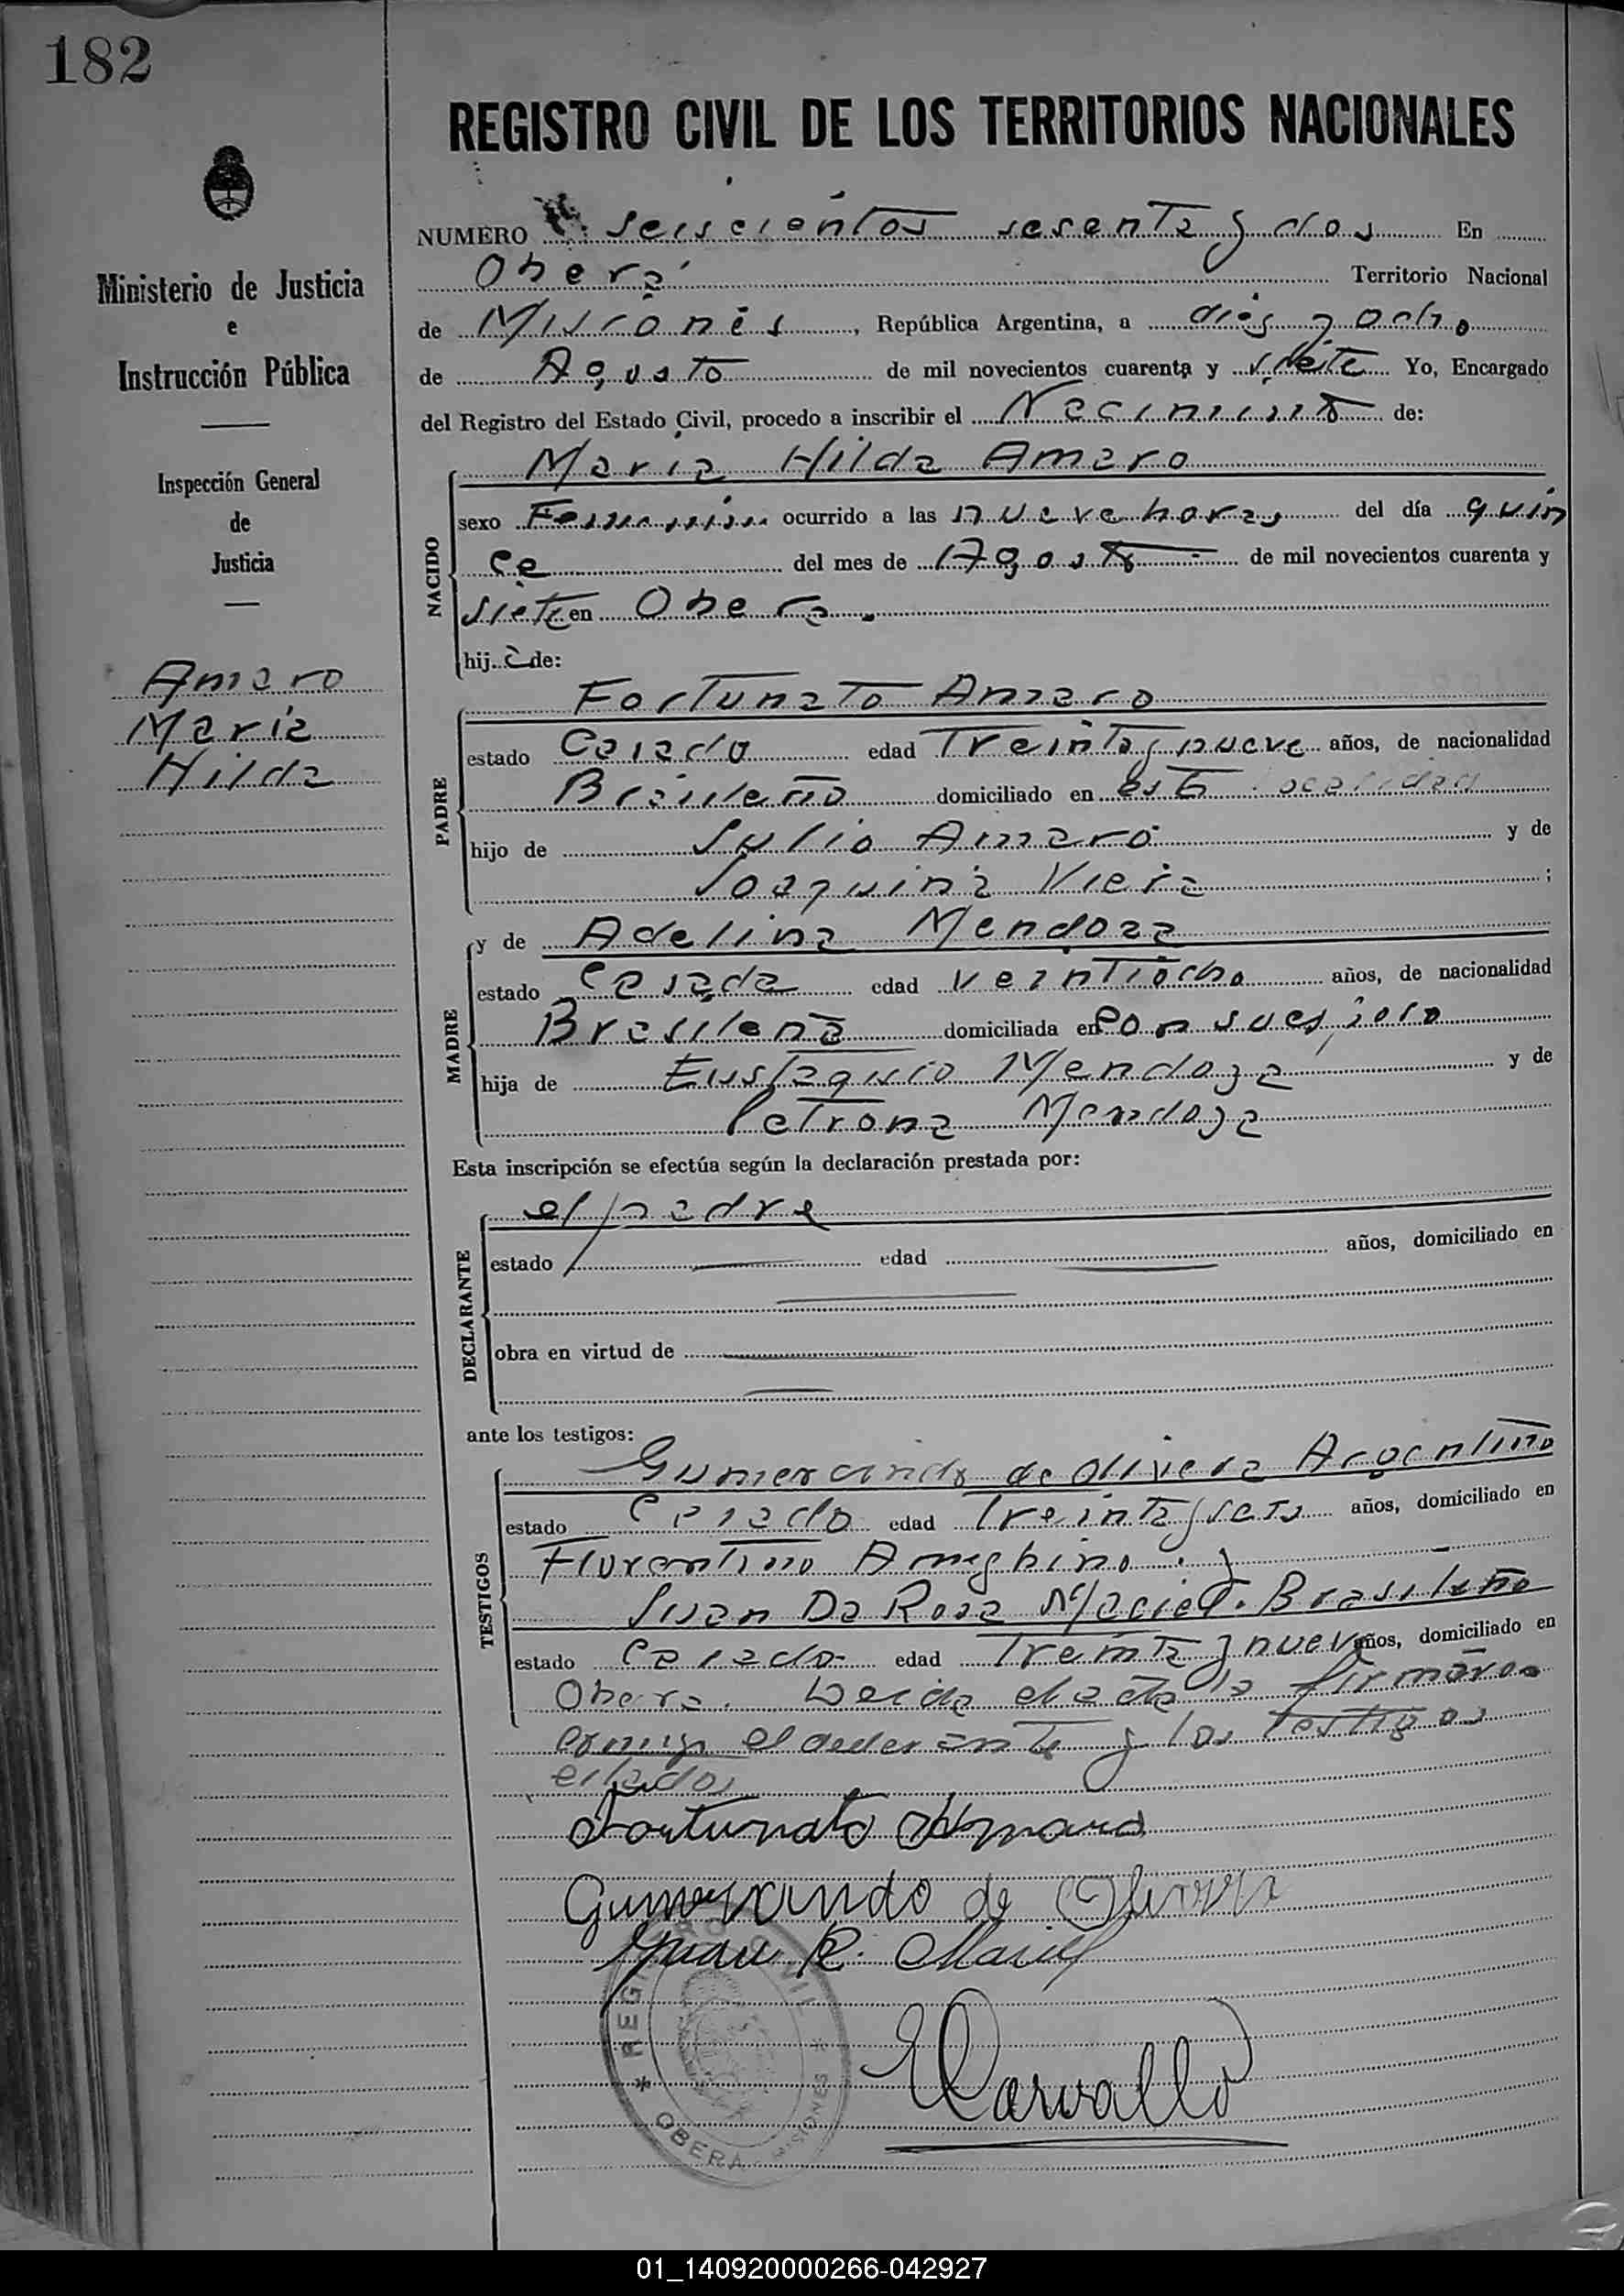 182
REGISTRO CIVIL DE LOS TERRITORIOS NACIONALES
Ministerio de Justicia
e
Instrucción Pública
Inspección General
de
Justicia
Amaro
Maria
Hilda
NUMERO seiscientos sesenta y dos En
Oberá Territorio Nacional
de Misiones, República Argentina, a dies y ocho
de Agosto de mil novecientos cuarenta y siete Yo, Encargado
del Registro del Estado Civil, procedo a inscribir el Nacimiento de:
NACIDO
Maria Hilda Amaro
sexo Femenino ocurrido a las nueve horas del día quin
ce del mes de Agosto de mil novecientos cuarenta y
siete en Obera.
hija de:
PADRE
Fortunato Amaro
estado Casado edad Treinta y nueve años, de nacionalidad
Brasileño domiciliado en esta localidad
hijo de Julio Amaro y de
Joaquina Viera ;
MADRE
y de Adelina Mendoza
estado Casada edad veintiocho años, de nacionalidad
Brasileña domiciliada en con su esposo
hija de Eustaquio Mendoza y de
Petrona Mendoza
Esta inscripción se efectúa según la declaración prestada por:
DECLARANTE
el padre
estado edad años, domiciliado en
obra en virtud de
ante los testigos:
TESTIGOS
Gumercindo de Olivera Argentino
estado Casado edad Treinta y seis años, domiciliado en
Florentino Ameghino. y
Juan Da Rosa Maciel. Brasileño
estado Casado edad Treinta y nueve años, domiciliado en
Obera. Leida el acta la firmaron
conmigo el declarante y los Testigos
citados
Fortunato Amaro
Gumercindo de Olivera
Juan R. Maciel
Carvallo
* REGISTRO CIVIL *
OBERA MISIONES
01_140920000266-042927